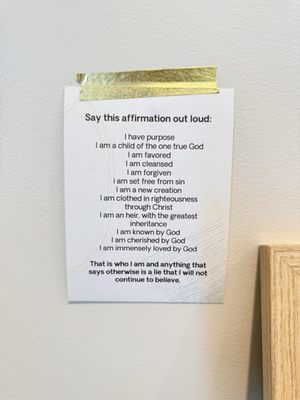 Say this affirmation out loud:
I have purpose
I am a child of the one true God
I am favored
I am cleansed
I am forgiven
i am set free from sin
I am a new creation
I am clothed in righteousness
through Christ
I am an heir, with the greatest
inheritance
I am known by God
I am cherished by God
I am immensely loved by God
That is who I am and anything that
says otherwise is a lie that I will not
continue to believe.